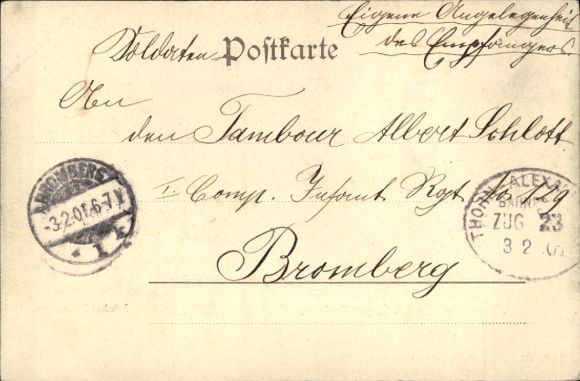 Eigene Angelegenheit
des Empfängers
Soldaten Postkarte
An
den Tambour Albert Schlott
I. Comp. Infant Rgt 129
Bromberg
BROMBERG
-3.2.01.6-7
1
THORN ALEXA
BAHN
ZUG 23
3 2 01